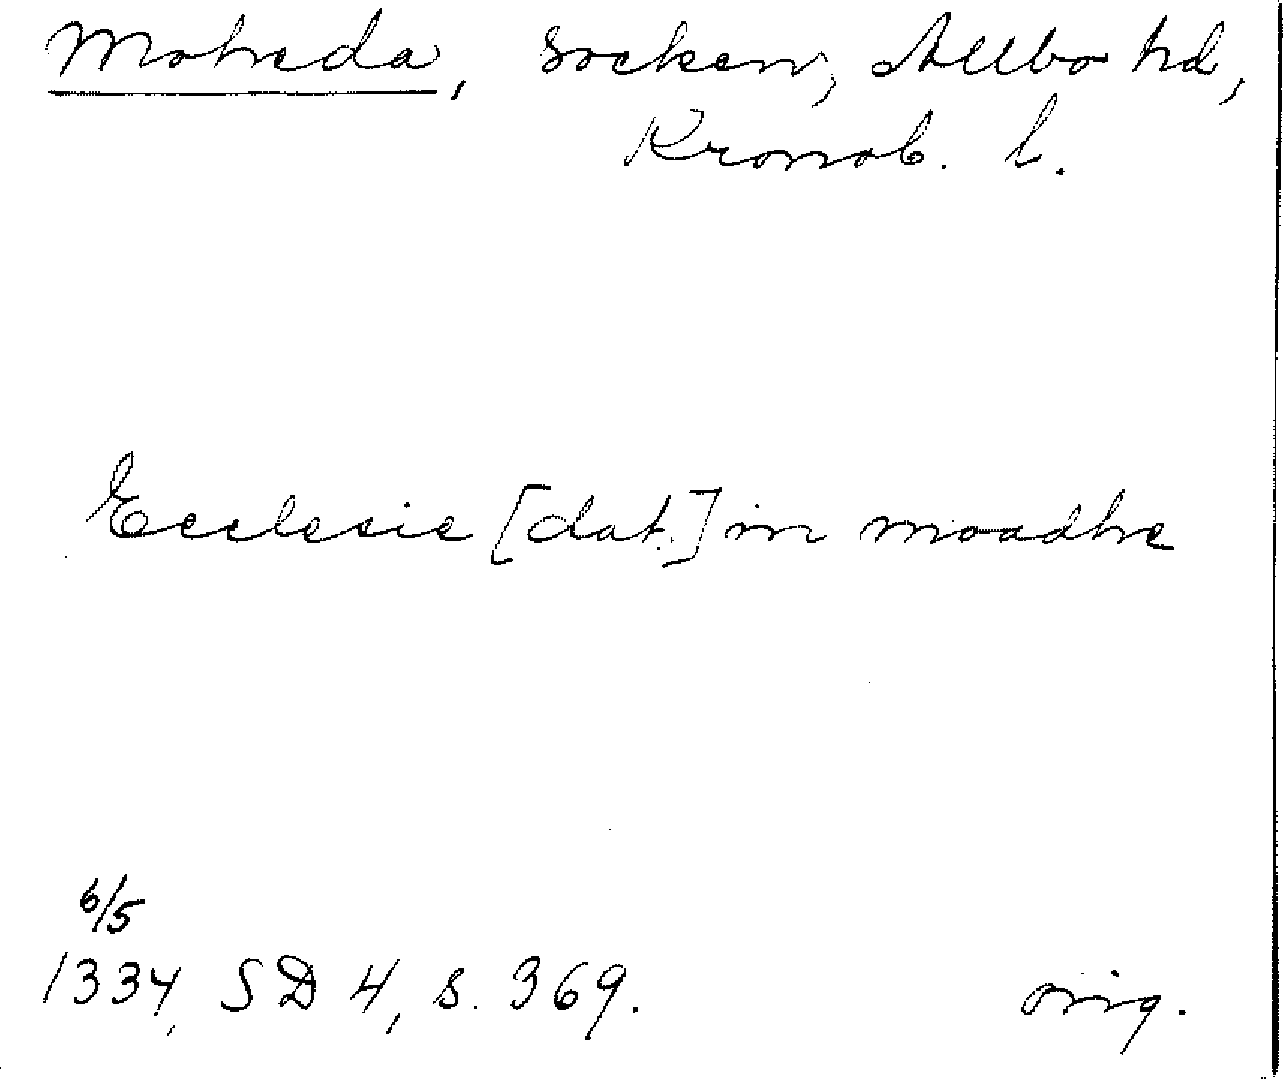 Moheda, socken, Allbo hd,
Kronob. l.
Ecclesie [dat.] in moadhe
6/5
1334, SD 4, s. 369.
orig.